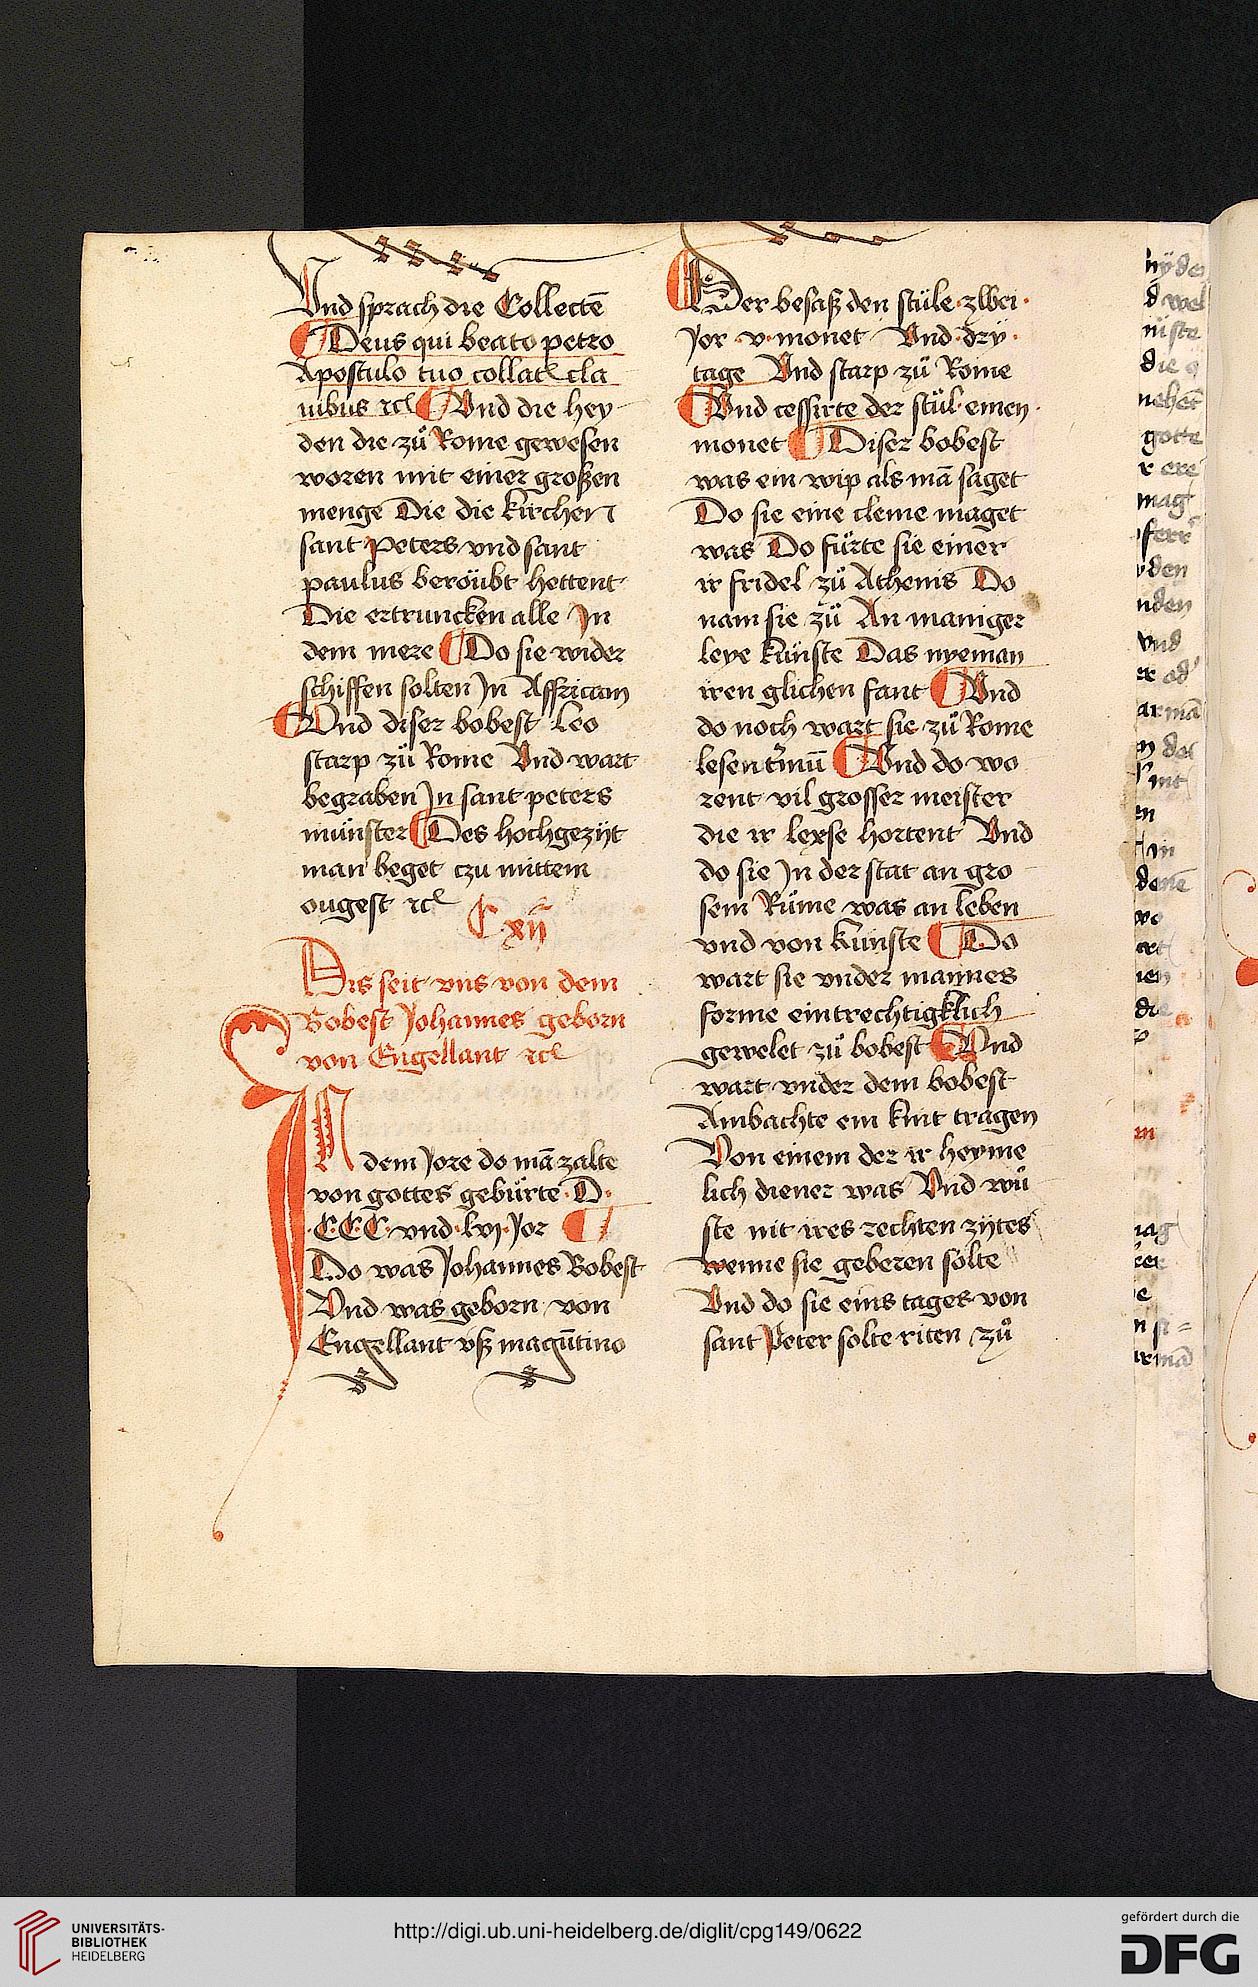 Vnd sprach die Collectē
Deus qui beato petro
Apostulo tuo collatꝭ cla
uibus ꝛcꝭ Vnd die hey
den die zů Rome gewesen
woren mit einer großen
menge Die die kirchen
sant Peters vnd sant
paulus beroͤubt hettent
Die ertruncken alle Jn
dem mere Do sie wider
schiffen solten Jn Affricam
Vnd diser bobest Leo
starp zů Rome Vnd wart
begraben Jn sant peters
münster Des hochgezijt
man beget czu mittem
ougest ꝛcꝭ
C xij
Dis seit vns von dem
Bobest Johannes geborn
von Engellant ꝛcꝭ
JN dem Jore do mā zalte
von gottes gebürte D.
.C.C.C. vnd lvj Jor
Do was Johannes Bobest
Vnd was geborn von
Engellant vß magūtino
Der besaß den stüle zwei
Jor v monet Vnd dry
tage Vnd starp zů Rome
Vnd cessirte der stül einen
monet Diser bobest
was ein wip als mā saget
Do sie eine cleine maget
was Do fürte sie einer
ir fridel zů Athenis Do
nam sie zů An maniger
leye künste Das nyeman
iren glichen fant Vnd
do noch wart sie zů Rome
lesen Vnd do wo
rent vil grosser meister
die ir lexse hortent Vnd
do sie Jn der stat an gro
sem Rüme was an leben
vnd von kunste Do
wart sie vnder mannes
forme eintrechtigklich
gewelet zů bobest Vnd
wart vnder dem bobest
Ambachte ein kint tragen
Von einem der ir heyme
lich diener was Vnd wů
ste nit ires rechten zytes
wenne sie geberen solte
Vnd do sie eins tages von
sant Peter solte riten zů
UNIVERSITÄTS-
BIBLIOTHEK
HEIDELBERG
http://digi.ub.uni-heidelberg.de/diglit/cpg149/0622
gefördert durch die
DFG